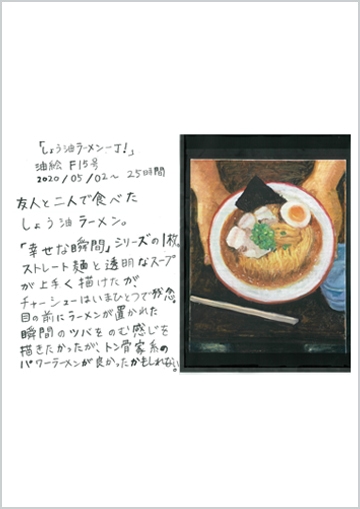 「しょう油ラーメン一丁！」
油絵 F15号
2020/05/02〜 25時間
友人と二人で食べた
しょう油ラーメン。
「幸せな瞬間」シリーズの1枚。
ストレート麺と透明なスープ
が上手く描けたが、
チャーシューはいまひとつで残念。
目の前にラーメンが置かれた
瞬間のツバをのむ感じを
描きたかったが、トン骨家系の
パワーラーメンが良かったかもしれない。